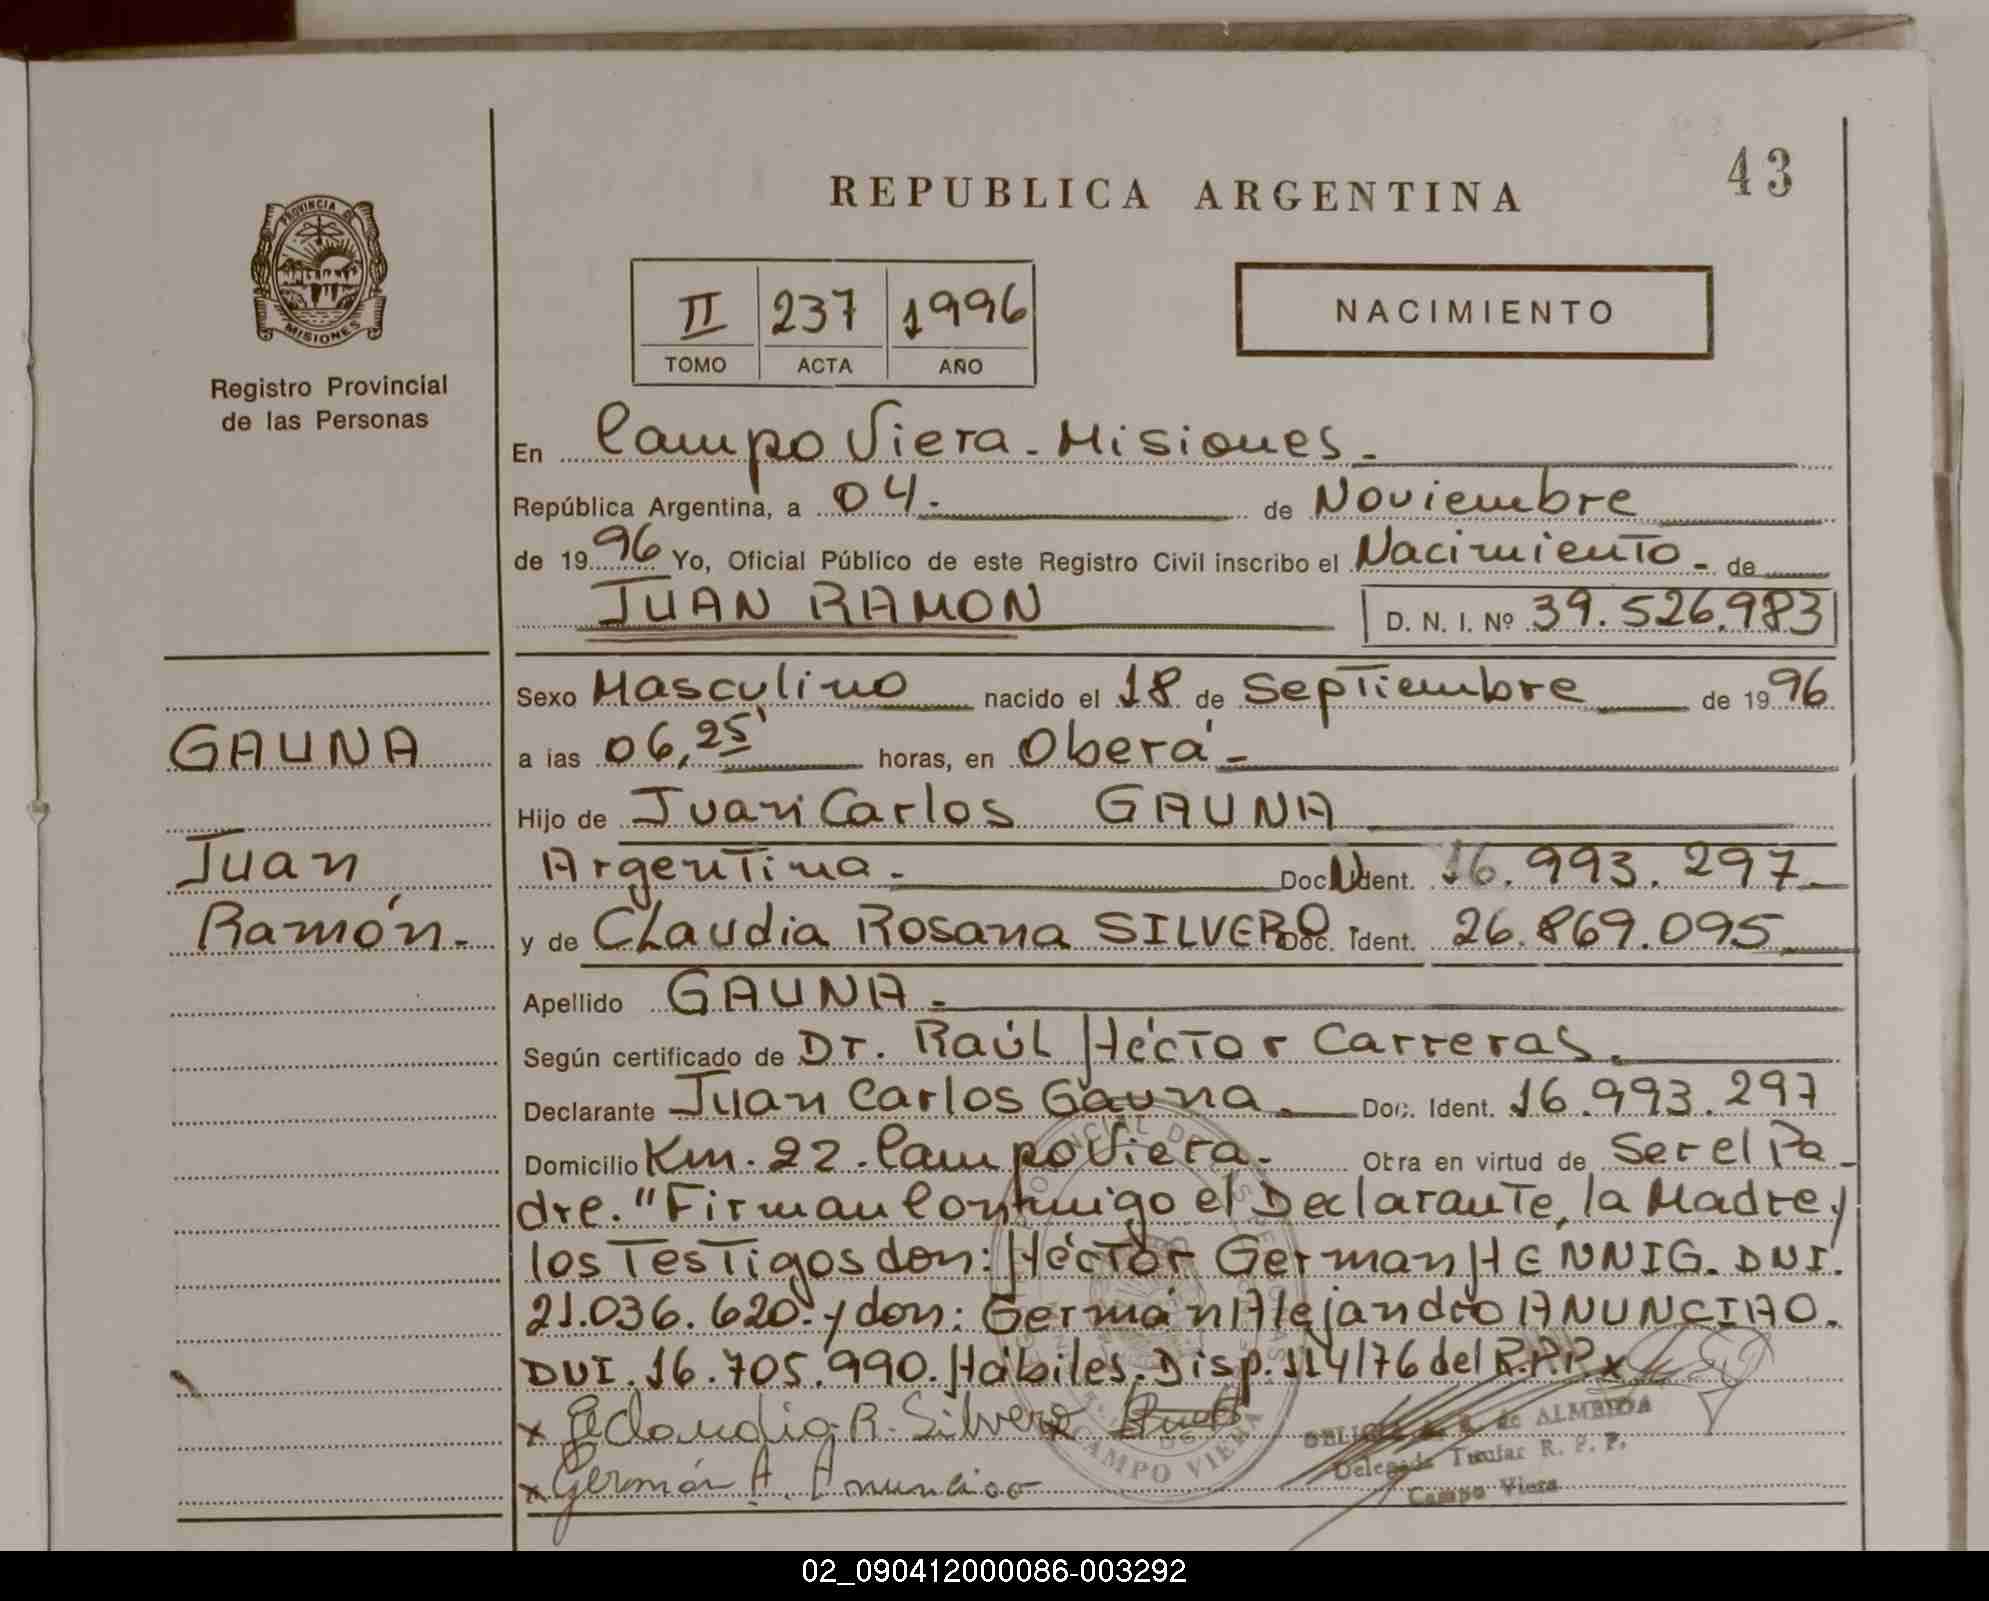 43
REPUBLICA ARGENTINA
PROVINCIA DE
MISIONES
Registro Provincial
de las Personas
II 237 1996
TOMO ACTA AÑO
NACIMIENTO
En Campo Viera - Misiones.-
República Argentina, a 04.- de Noviembre
de 1996 Yo, Oficial Público de este Registro Civil inscribo el Nacimiento - de
JUAN RAMON D. N. I. Nº 39.526.983
Sexo Masculino nacido el 18 de Septiembre de 1996
GAUNA
a las 06,25' horas, en Oberá -
Hijo de Juan Carlos GAUNA
Juan
Argentina.- Doc. Ident. 16.993.297
Ramón.-
y de Claudia Rosana SILVERO Doc. Ident. 26.869.095
Apellido GAUNA.-
Según certificado de Dr. Raúl Héctor Carreras.
Declarante Juan Carlos Gauna. Doc. Ident. 16.993.297
Domicilio Km. 22. Campo Viera.- Obra en virtud de Ser el Pa-
dre. "Firman Conmigo el Declarante, la Madre y
los Testigos don: Héctor German HENNIG. DNI.
21.036.620. y don: Germán Alejandro ANUNCIAO.
DNI. 16.705.990. Hábiles. Disp. 114/76 del R.P.P. x
x Claudia R. Silvero
x Germán A. Anunciao
de ALMEIDA
Delegada Titular R. P. P.
Campo Viera
CAMPO VIERA
02_090412000086-003292